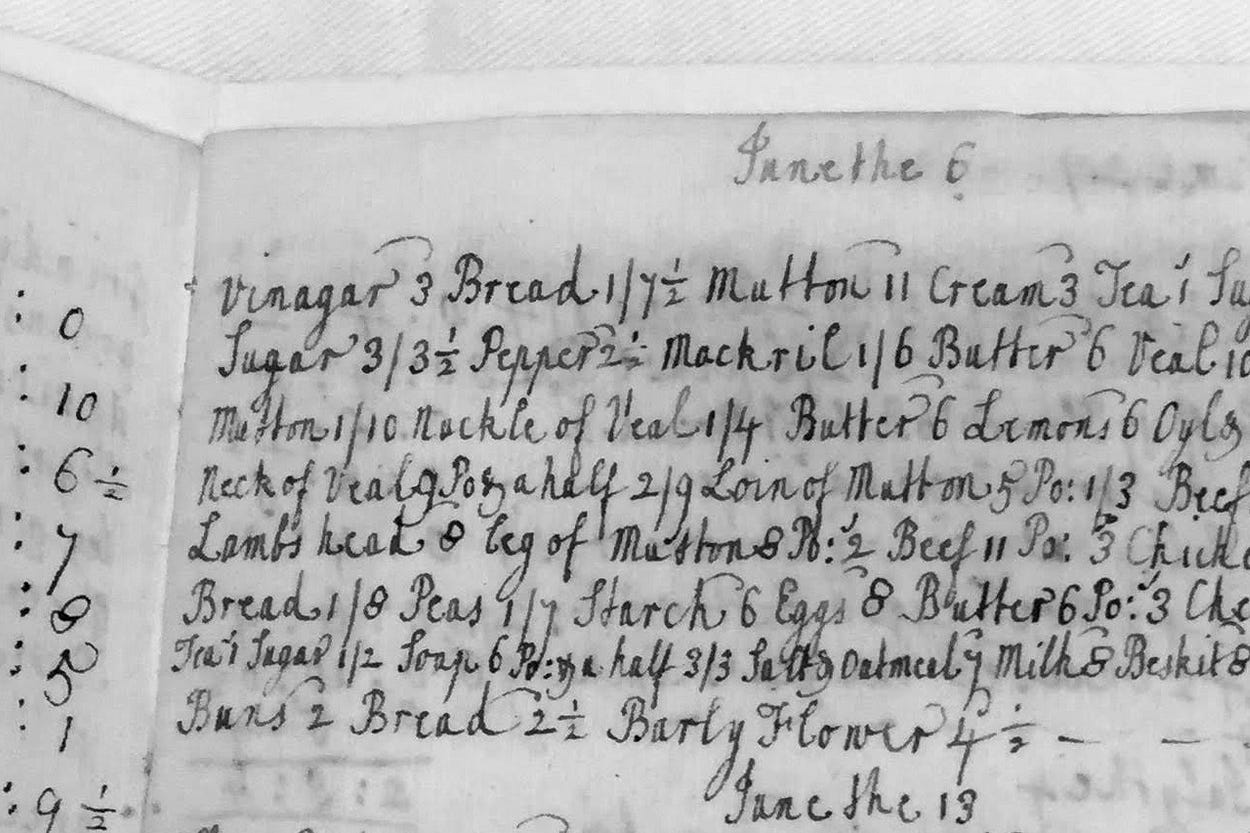 June the 6
: 0
: 10
: 6 ½
: 7
: 8
: 5
: 1
: 9 ½
Vinagar 3 Bread 1/7½ Mutton 11 Cream 3 Tea 1 Su
Sugar 3/3½ Pepper 2½ Mackril 1/6 Butter 6 Veal 10
Mutton 1/10 Nuckle of Veal 1/4 Butter 6 Lemons 6 Oyl
Neck of Veal 9 Po & a half 2/9 Loin of Mutton 5 Po: 1/3 Beef
Lambs head 8 leg of Mutton 8 Po: 2 Beef 11 Po: 3 Chick
Bread 1/8 Peas 1/7 Starch 6 Eggs 8 Butter 6 Po: 3 Che
Tea 1 Sugar 1/2 Soap 6 Po: & a half 3/3 Salt Oatmeal 7 Milk 8 Beskit 8
Buns 2 Bread 2½ Barly Flower 4½ — —
June the 13